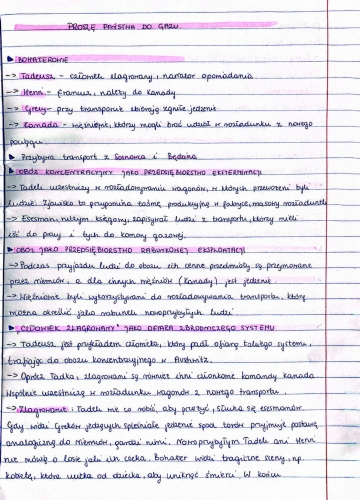 PROSZĘ PAŃSTWA DO GAZU
▶ BOHATEROWIE
-> Tadeusz - człowiek zlagrowany, narrator opowiadania
-> Henri - francuz, należy do Kanady
-> Grecy - przy transporcie zbierają zgniłe jedzenie
-> Kanada - więźniowie, którzy mogli brać udział w rozładunku z nowego
pociągu.
▶ Przybywa transport z Sosnowca i Będzina
▶ OBÓZ KONCENTRACYJNY JAKO PRZEDSIĘBIORSTWO EKSTERMINACJI
-> Tadek uczestniczy w rozładowywaniu wagonów, w których przewożeni byli
ludzie. Zjawisko to przypomina taśmę produkcyjną w fabryce, masowy rozładunek
-> Esesman, niczym księgowy, zapisywał ludzi z transportu, którzy mieli
iść do pracy i tych do komory gazowej.
▶ OBÓZ JAKO PRZEDSIĘBIORSTWO RABUNKOWEJ EKSPLOATACJI
-> Podczas przyjazdu ludzi do obozu, ich cenne przedmioty są przejmowane
przez niemców, a dla innych więźniów (Kanady) jest jedzenie.
-> Więźniowie byli wykorzystywani do rozładowywania transportu, którą
można określić jako rabunek nowoprzybyłych ludzi
▶ „CZŁOWIEK ZLAGROWANY" JAKO OFIARA ZBRODNICZEGO SYSTEMU
-> Tadeusz jest przykładem człowieka, który padł ofiarą całego systemu,
trafiając do obozu koncentracyjnego w Aushwitz.
-> Oprócz Tadka, zlagrowani są również inni członkowie komandy Kanada
Wspólnie uczestniczą w rozładunku wagonów z nowego transportu.
-> Zlagrowanie: Tadek wie co robić, aby przeżyć, słucha się esesmanów.
Gdy widzi Greków jedzących spleśniałe jedzenie spod torów przyjmuje postawę
analogiczną do Niemców, gardzi nimi. Nowoprzybyłym Tadek ani Henri
nie mówią o losie jaki ich czeka. Bohater widzi tragiczne sceny, np.
kobietę, która ucieka od dziecka, aby uniknąć śmierci. W końcu